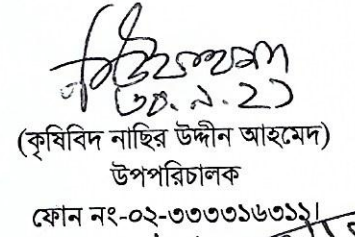 ৩০.৯.২১
(কৃষিবিদ নাছির উদ্দীন আহমেদ)
উপপরিচালক
ফোন নং-০২-৩৩৩৩১৬৩১১।